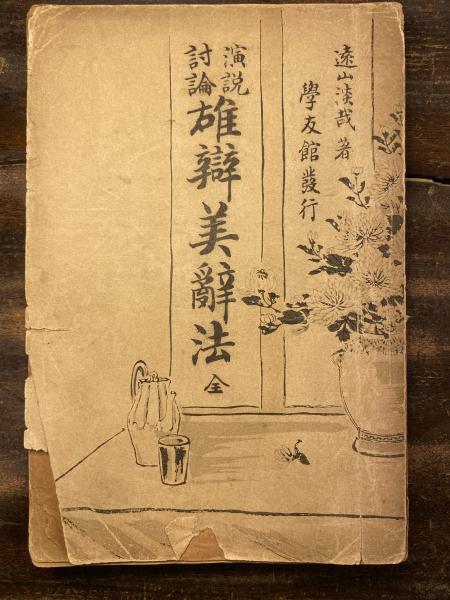 遠山淡哉著
學友館發行
演説
討論
雄辯美辭法 全